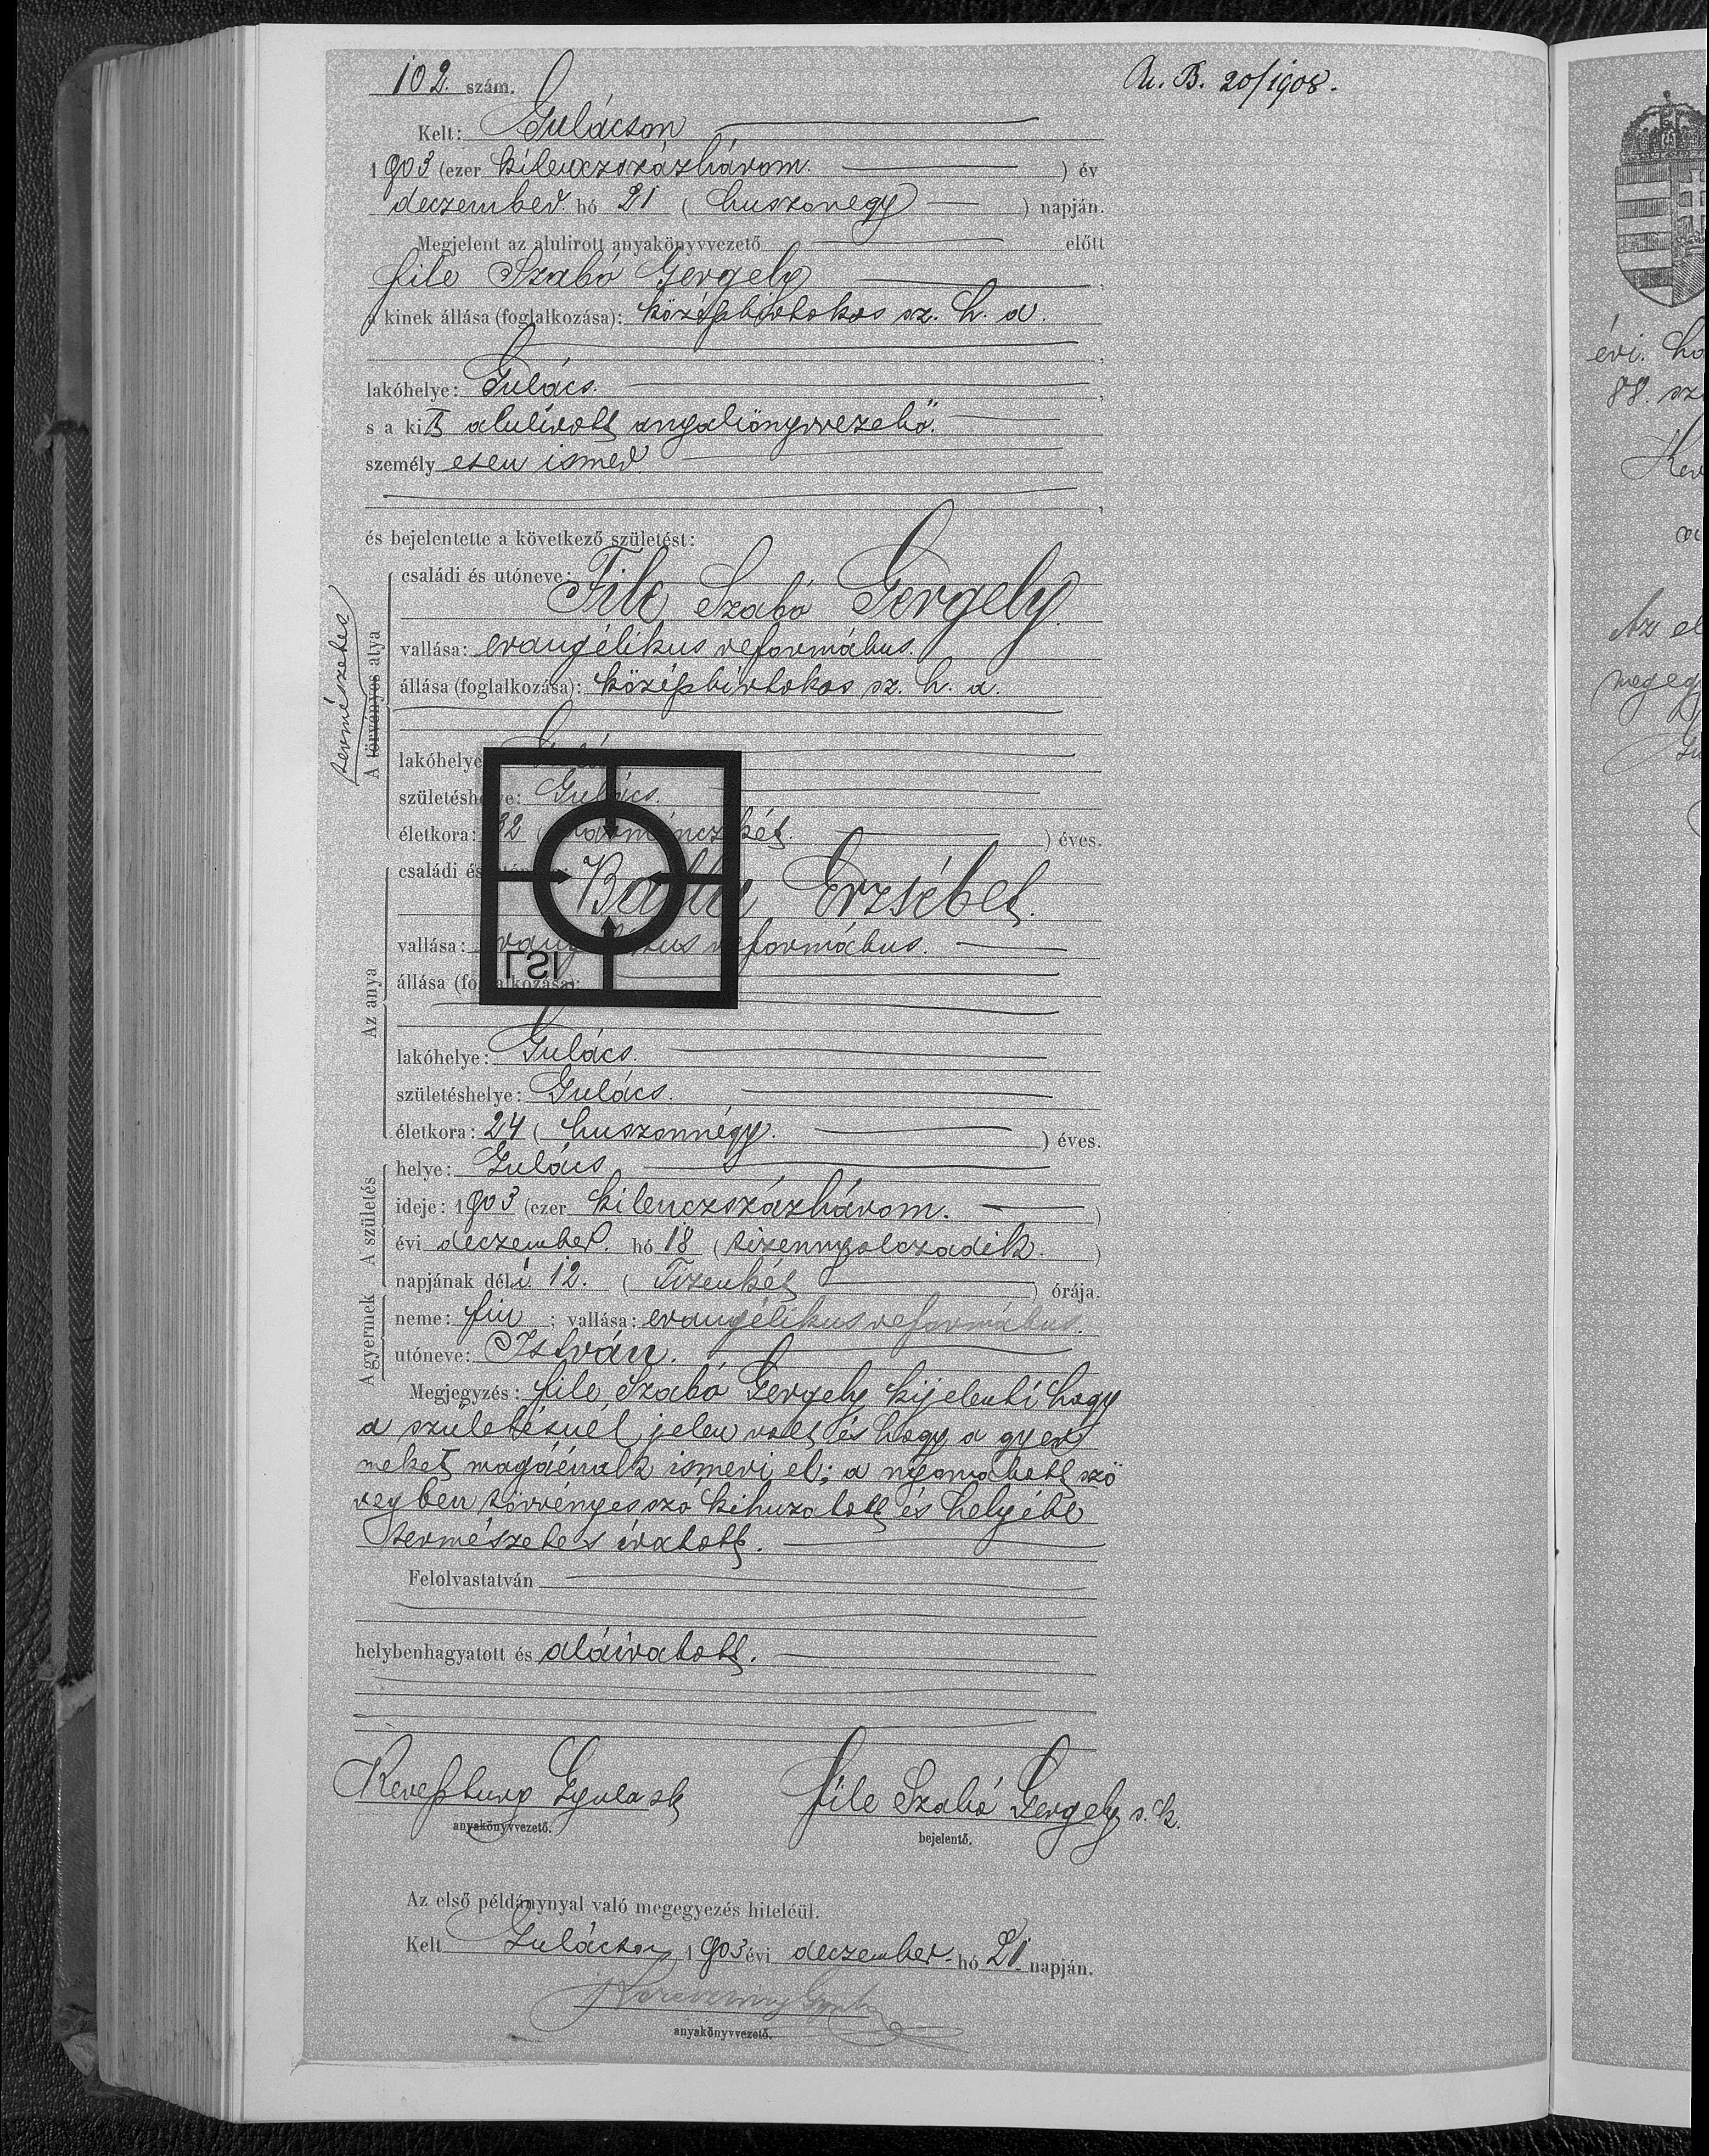 102. szám.
A. B. 20/1908.
Kelt: Gulácson
1903 (ezer kilenczszázhárom. ) év
deczember. hó 21 ( huszonegy ) napján.
Megjelent az alulirott anyakönyvvezető előtt
file Szabó Gergely ,
a kinek állása (foglalkozása): középbirtokos sz. h. a.
,
lakóhelye: Gulács. ,
s a kit alulírott anyakönyvvezető.
személy esen ismer
,
és bejelentette a következő születést:
természetes
A törvényes atya
családi és utóneve:
File Szabó Gergely.
vallása: evangélikus református.
állása (foglalkozása): középbirtokos sz. h. a.
lakóhelye
születéshelye: Gulács.
életkora: 32 ( harminczkét. ) éves.
Az anya
családi és
Erzsébet.
vallása: evangélikus református.
állása (foglalkozása):
LSI
lakóhelye: Gulács.
születéshelye: Gulács.
életkora: 24 ( huszonnégy. ) éves.
A születés
helye: Gulács
ideje: 1903 (ezer kilenczszázhárom. )
évi deczember. hó 18 ( tizennyolczadik. )
napjának déli. 12. ( Tizenkét ) órája.
A gyermek
neme: fiu ; vallása: evangélikus református.
utóneve: István.
Megjegyzés: file Szabó Gergely kijelenti hogy
a születésnél jelen volt és hogy a gyer
meket magáénak ismeri el; a nyomatott szö
vegben törvényes szó kihuzatott és helyébe
természetes iratott.
Felolvastatván
helybenhagyatott és aláiratott.
Gyula sk
file Szabó Gergely s. k.
anyakönyvvezető.
bejelentő.
Az első példánynyal való megegyezés hiteléül.
Kelt Gulácson 1903 évi deczember. hó 21. napján.
anyakönyvvezető.